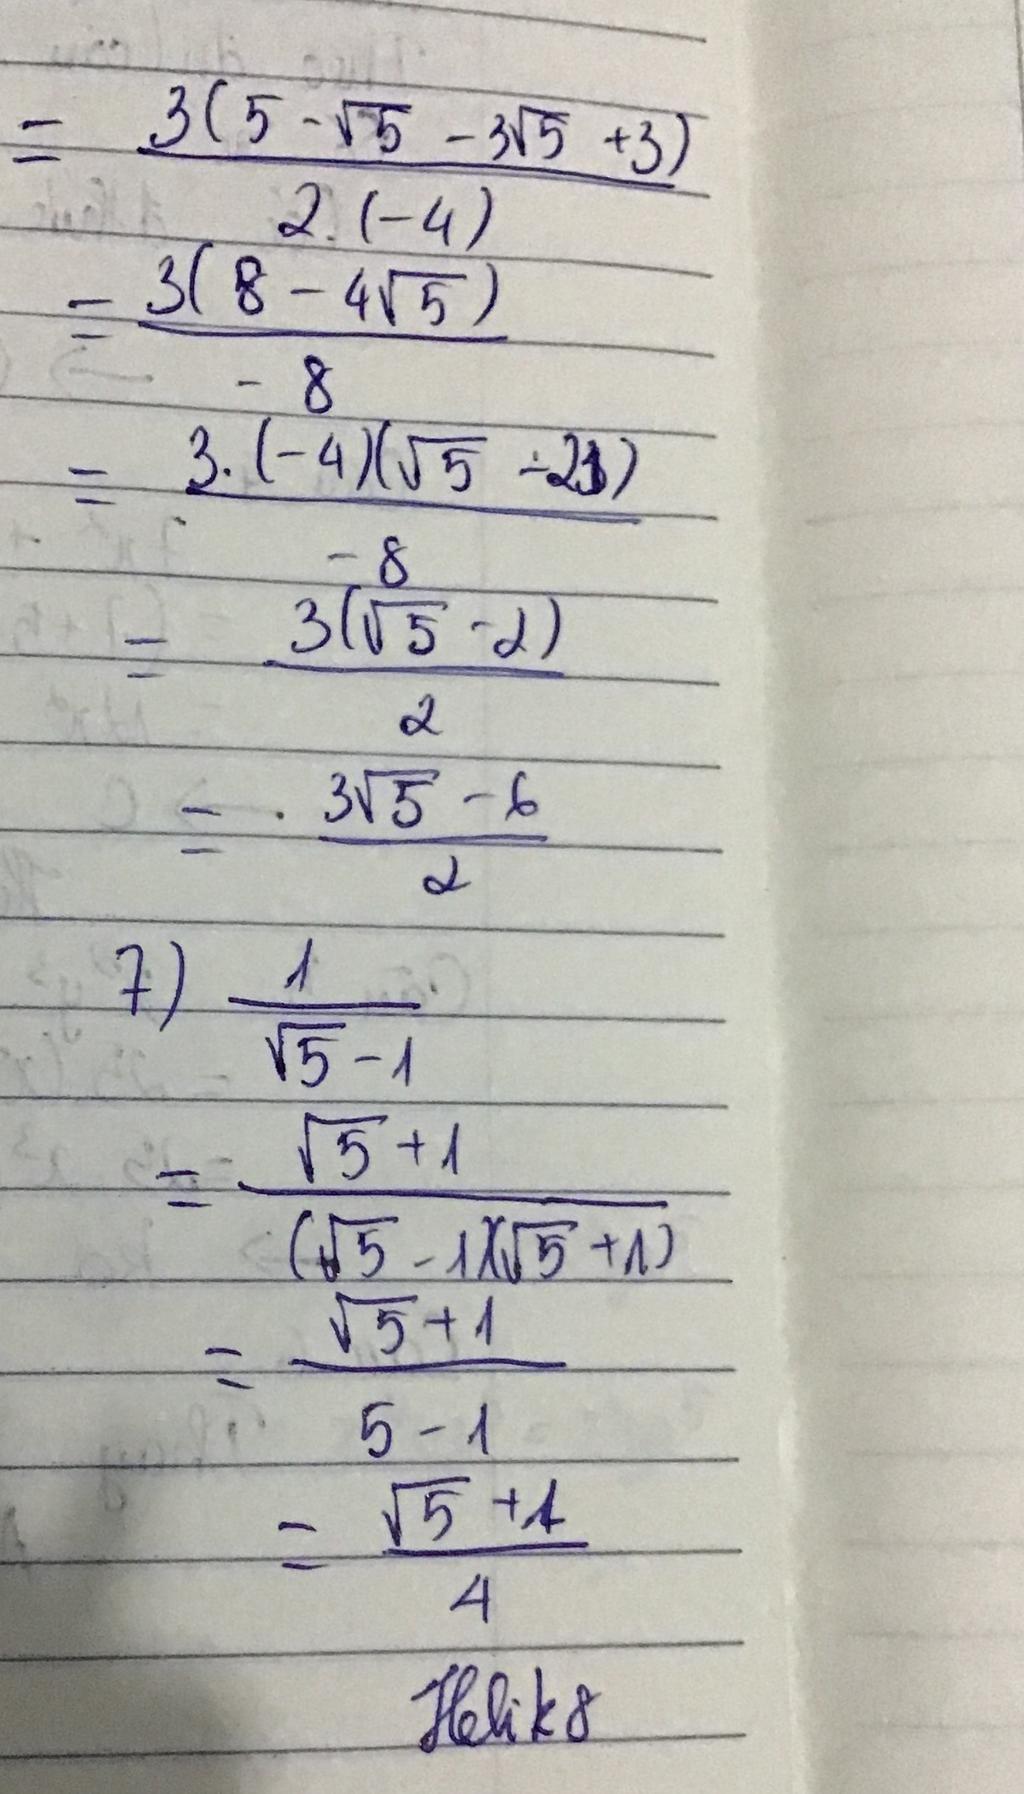 = 3(5 - √5 - 3√5 + 3)
2.(-4)
= 3(8 - 4√5)
- 8
= 3.(-4)(√5 - 2)
- 8
= 3(√5 - 2)
2
= 3√5 - 6
2
7) 1
√5 - 1
= √5 + 1
(√5 - 1)(√5 + 1)
= √5 + 1
5 - 1
= √5 + 1
4
Helik8